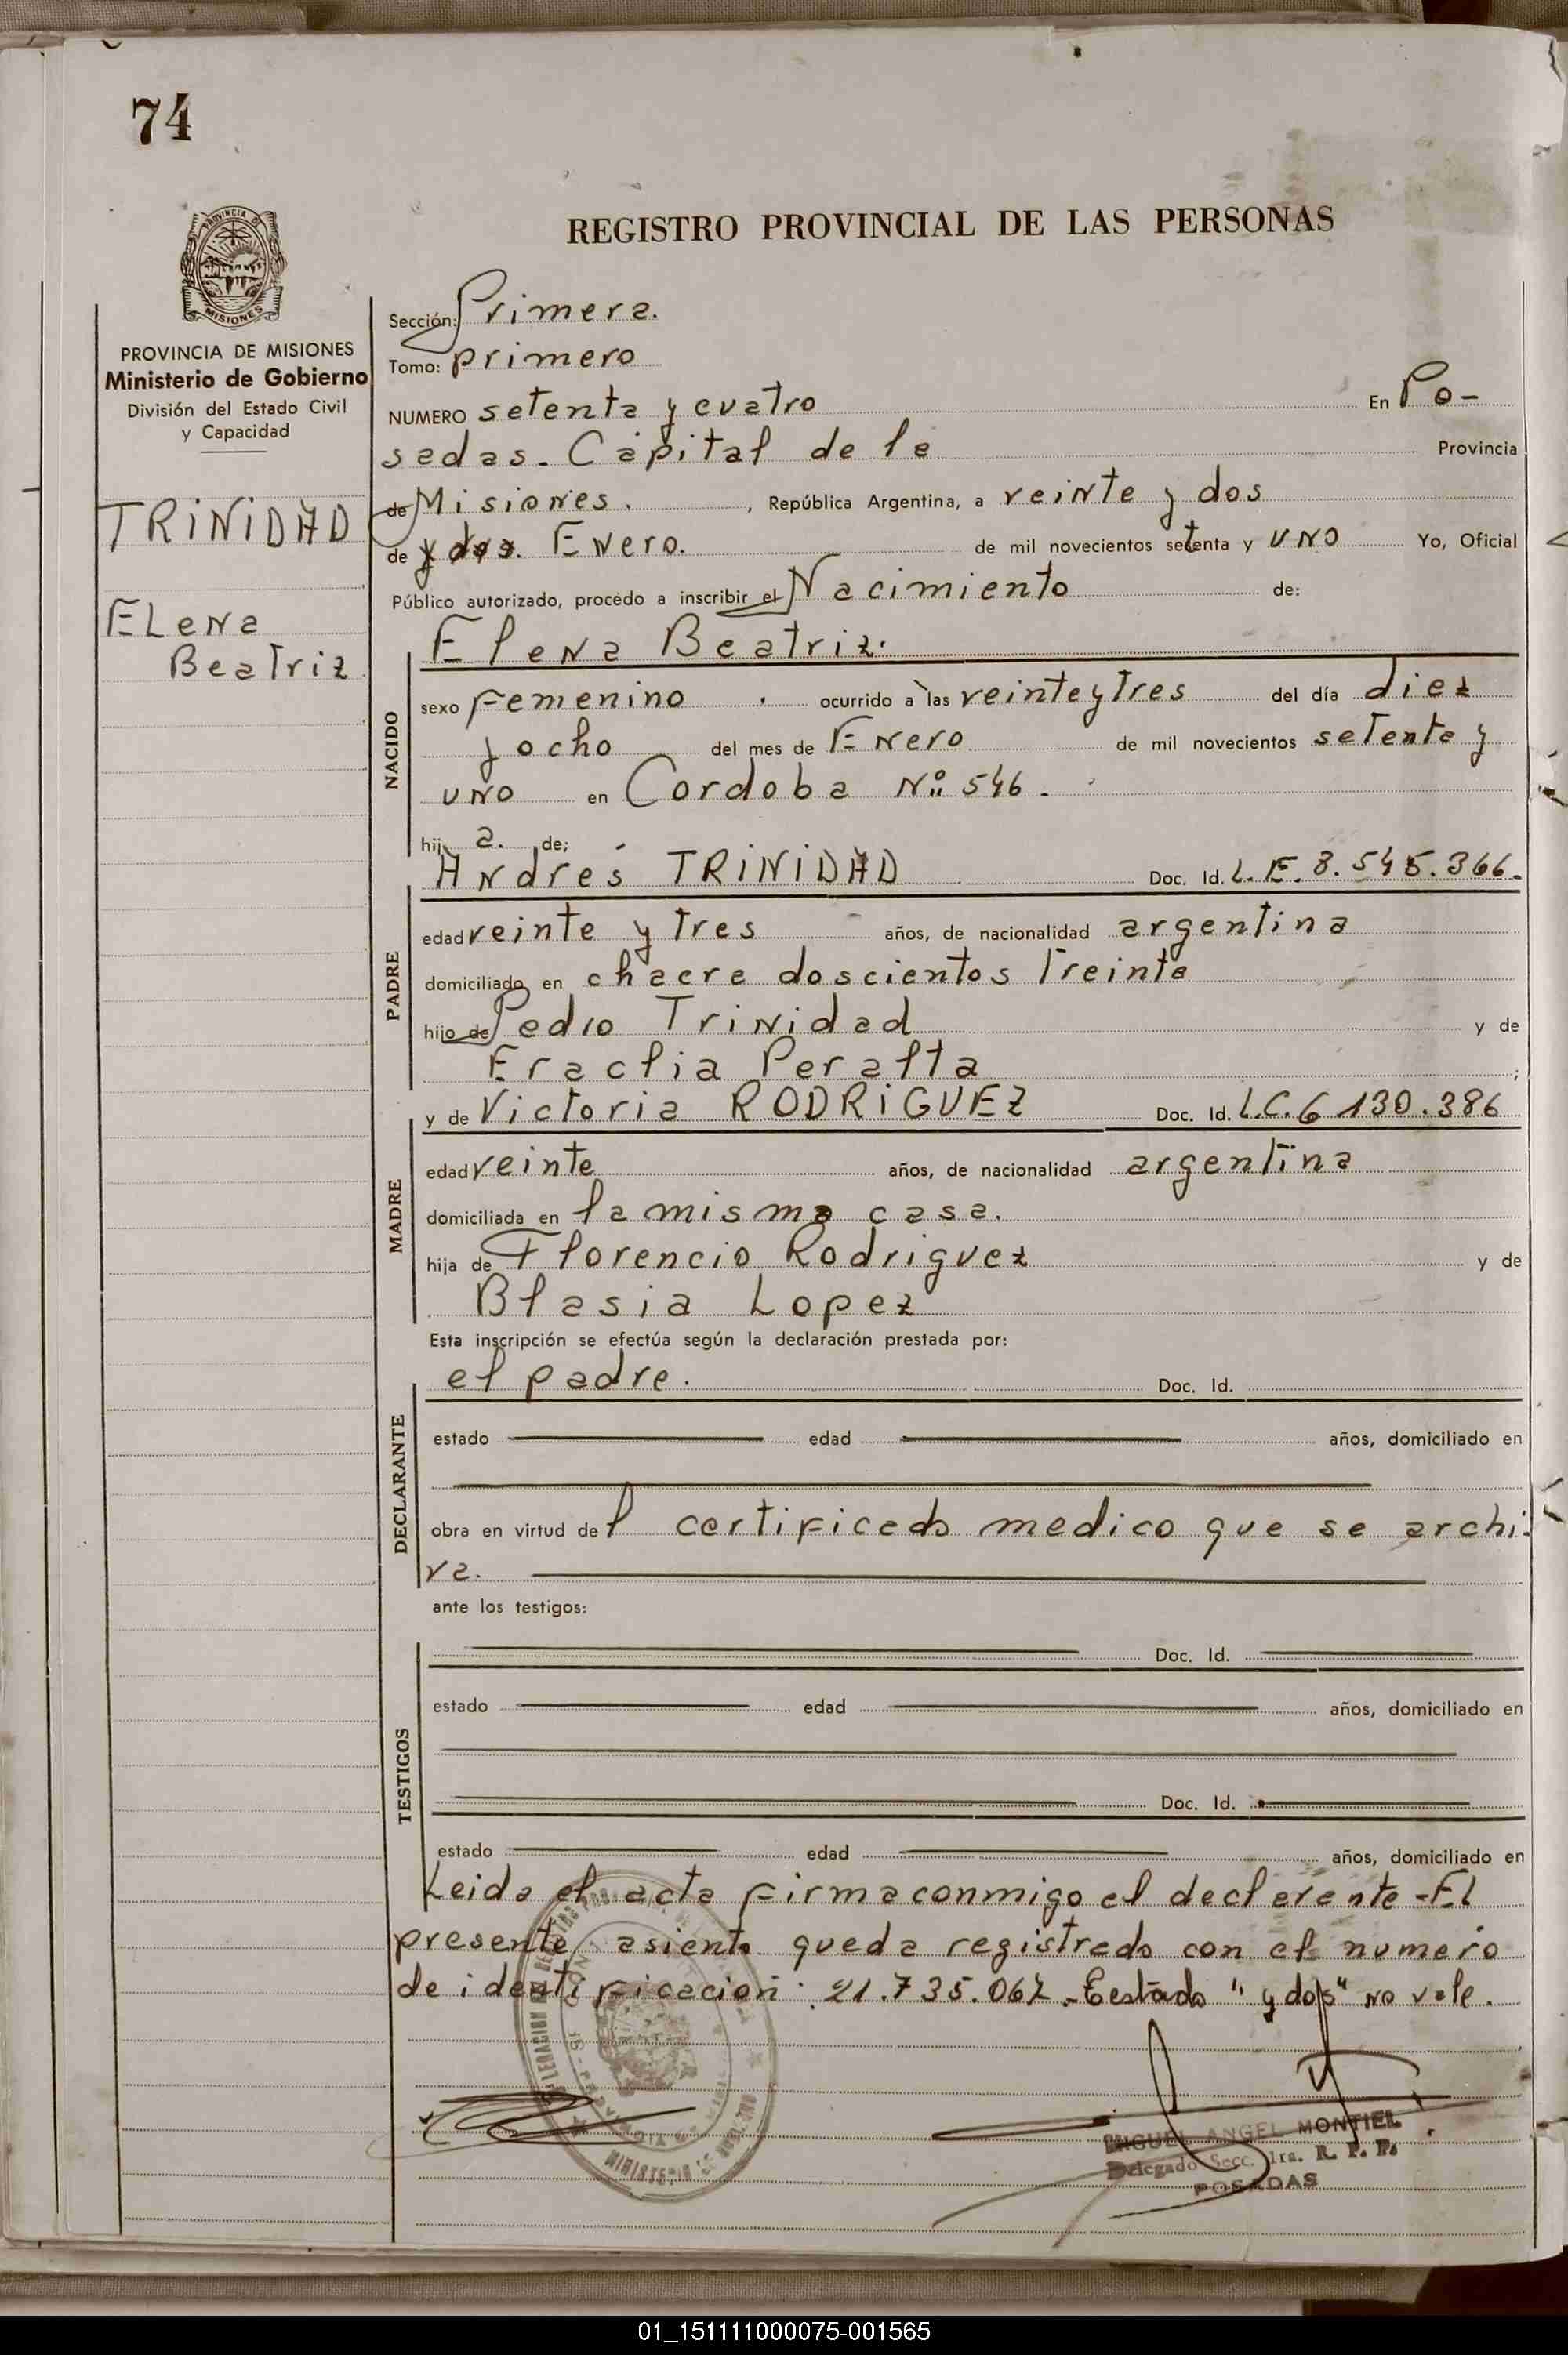 74
REGISTRO PROVINCIAL DE LAS PERSONAS
PROVINCIA DE MISIONES
Ministerio de Gobierno
División del Estado Civil
y Capacidad
TRINIDAD
Elena
Beatriz
Sección: Primera.
Tomo: primero
NUMERO setenta y cuatro En Po-
sadas. Capital de la Provincia
de Misiones. , República Argentina, a veinte y dos
de y dos. Enero. de mil novecientos setenta y uno Yo, Oficial
Público autorizado, procedo a inscribir el Nacimiento de:
Elena Beatriz.
NACIDO
sexo Femenino . ocurrido a las veinte y Tres del día diez
y ocho del mes de Enero de mil novecientos setenta y
uno en Cordoba Nº 546.
hij a. de;
Andrés TRINIDAD Doc. Id. L.E. 8.545.366.
PADRE
edad veinte y Tres años, de nacionalidad argentina
domiciliado en chacra doscientos Treinta
hijo de Pedro Trinidad y de
Eraclia Peralta ;
y de Victoria RODRIGUEZ Doc. Id. L.C. 6 130.386
MADRE
edad veinte años, de nacionalidad argentina
domiciliada en la misma casa.
hija de Florencio Rodriguez y de
Blasia Lopez
Esta inscripción se efectúa según la declaración prestada por:
el padre. Doc. Id.
DECLARANTE
estado edad años, domiciliado en
obra en virtud del certificado medico que se archi-
va.
ante los testigos:
Doc. Id.
TESTIGOS
estado edad años, domiciliado en
Doc. Id.
estado edad años, domiciliado en
Leida el acta firma conmigo el declarente - El
presente asiento queda registrado con el numero
de identificacion: 21.735.062.- Testado "y dos" no vale.
MIGUEL ANGEL MONTIEL
Delegado Secc. 1ra. R. P. P.
POSADAS
01_151111000075-001565